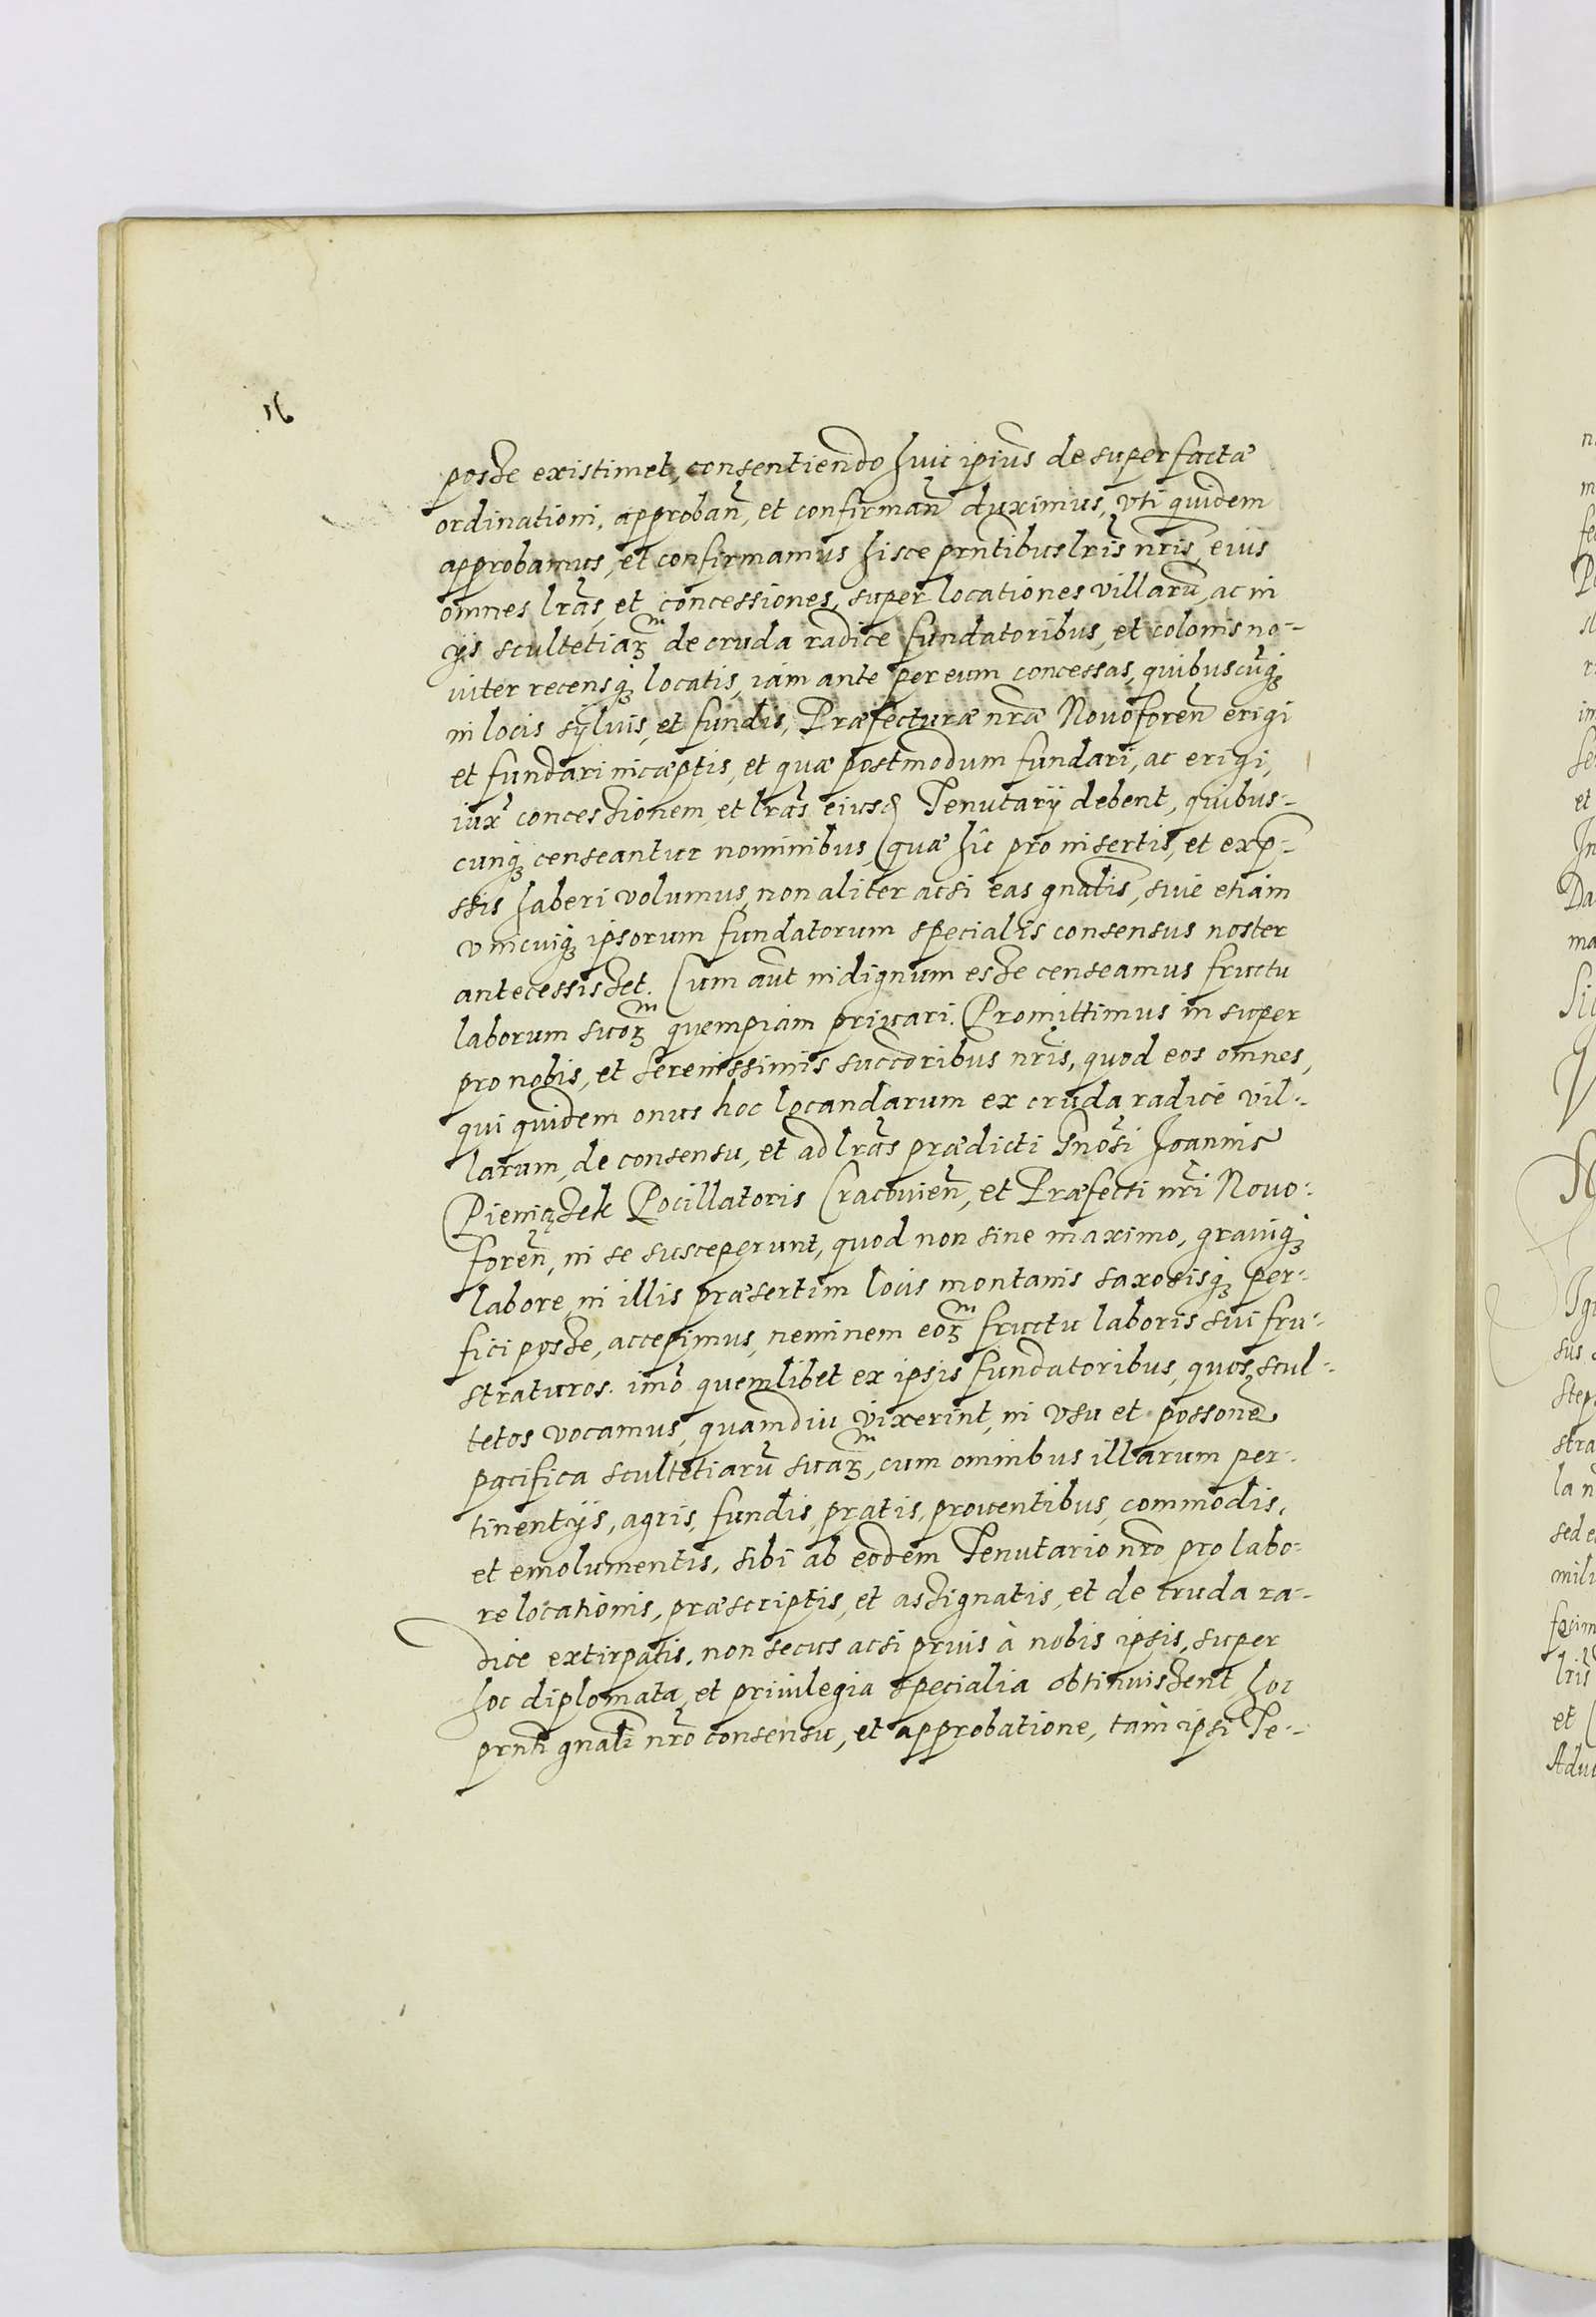 16
posse existimet, consentiendo huic ipius desuper factæ
ordinationi, approban̄, et confirman̄ duximus, vti quidem
approbamus, et confirmamus hisce prn̄tibus lr̄is nr̄is, eius
omnes lr̄as, et concessiones, super locationes villarū, ac in
ijs scultetiaꝝ de cruda radice fundatoribus, et colonis no-
uiter recensq̃ locatis, iam ante per eum concessas, quibuscūq̃
in locis syluis, et fundis, Præfecturæ nr̄æ Nouoforen̄ erigi
et fundari incæptis, et quæ postmodum fundari, ac erigi,
iux̄ concessionem, et lr̄as eiusd̄ Tenutarÿ debent, quibus-
cunq̃ censeantur nominibus, quæ hic pro insertis, et exp̄-
ssis haberi volumus, non aliter acsi eas gn̄alis, siue etiam
vnicuiq̃ ipsorum fundatorum specialis consensus noster
antecessisset. Cum aūt indignum esse censeamus fructu
laborum suoꝝ quempiam priuari. Promittimus insuper
pro nobis, et serenissimis succōribus nr̄is, quod eos omnes,
qui quidem onus hoc locandarum ex cruda radice vil-
larum, de consensu, et ad lr̄as prædicti Gnōsi Joannis
Pieniązek Pocillatoris Cracouien̄, et Præfecti nr̄i Nouo-
foren̄, in se susceperunt, quod non sine maximo, grauiq̃
labore, in illis præsertim locis montanis saxosisq̃ per-
fici posse, accepimus, neminem eoꝝ fructu laboris sui fru-
straturos. imo quemlibet ex ipsis fundatoribus, quos scul-
tetos vocamus, quamdiu vixerint, in vsu et possonē
pacifica scultetiarū suaꝝ, cum omnibus illarum per-
tinentÿs, agris, fundis, pratis, prouentibus, commodis,
et emolumentis, sibi ab eodem Tenutario nr̄o pro labo-
re locationis, præscriptis, et assignatis, et de cruda ra-
dice extirpatis, non secus acsi prius à nobis ipsis, super
hoc diplomata, et priuilegia specialia obtinuissent, hoc
prn̄ti gn̄ali nr̄o consensu, et approbatione, tam ipsi Te-